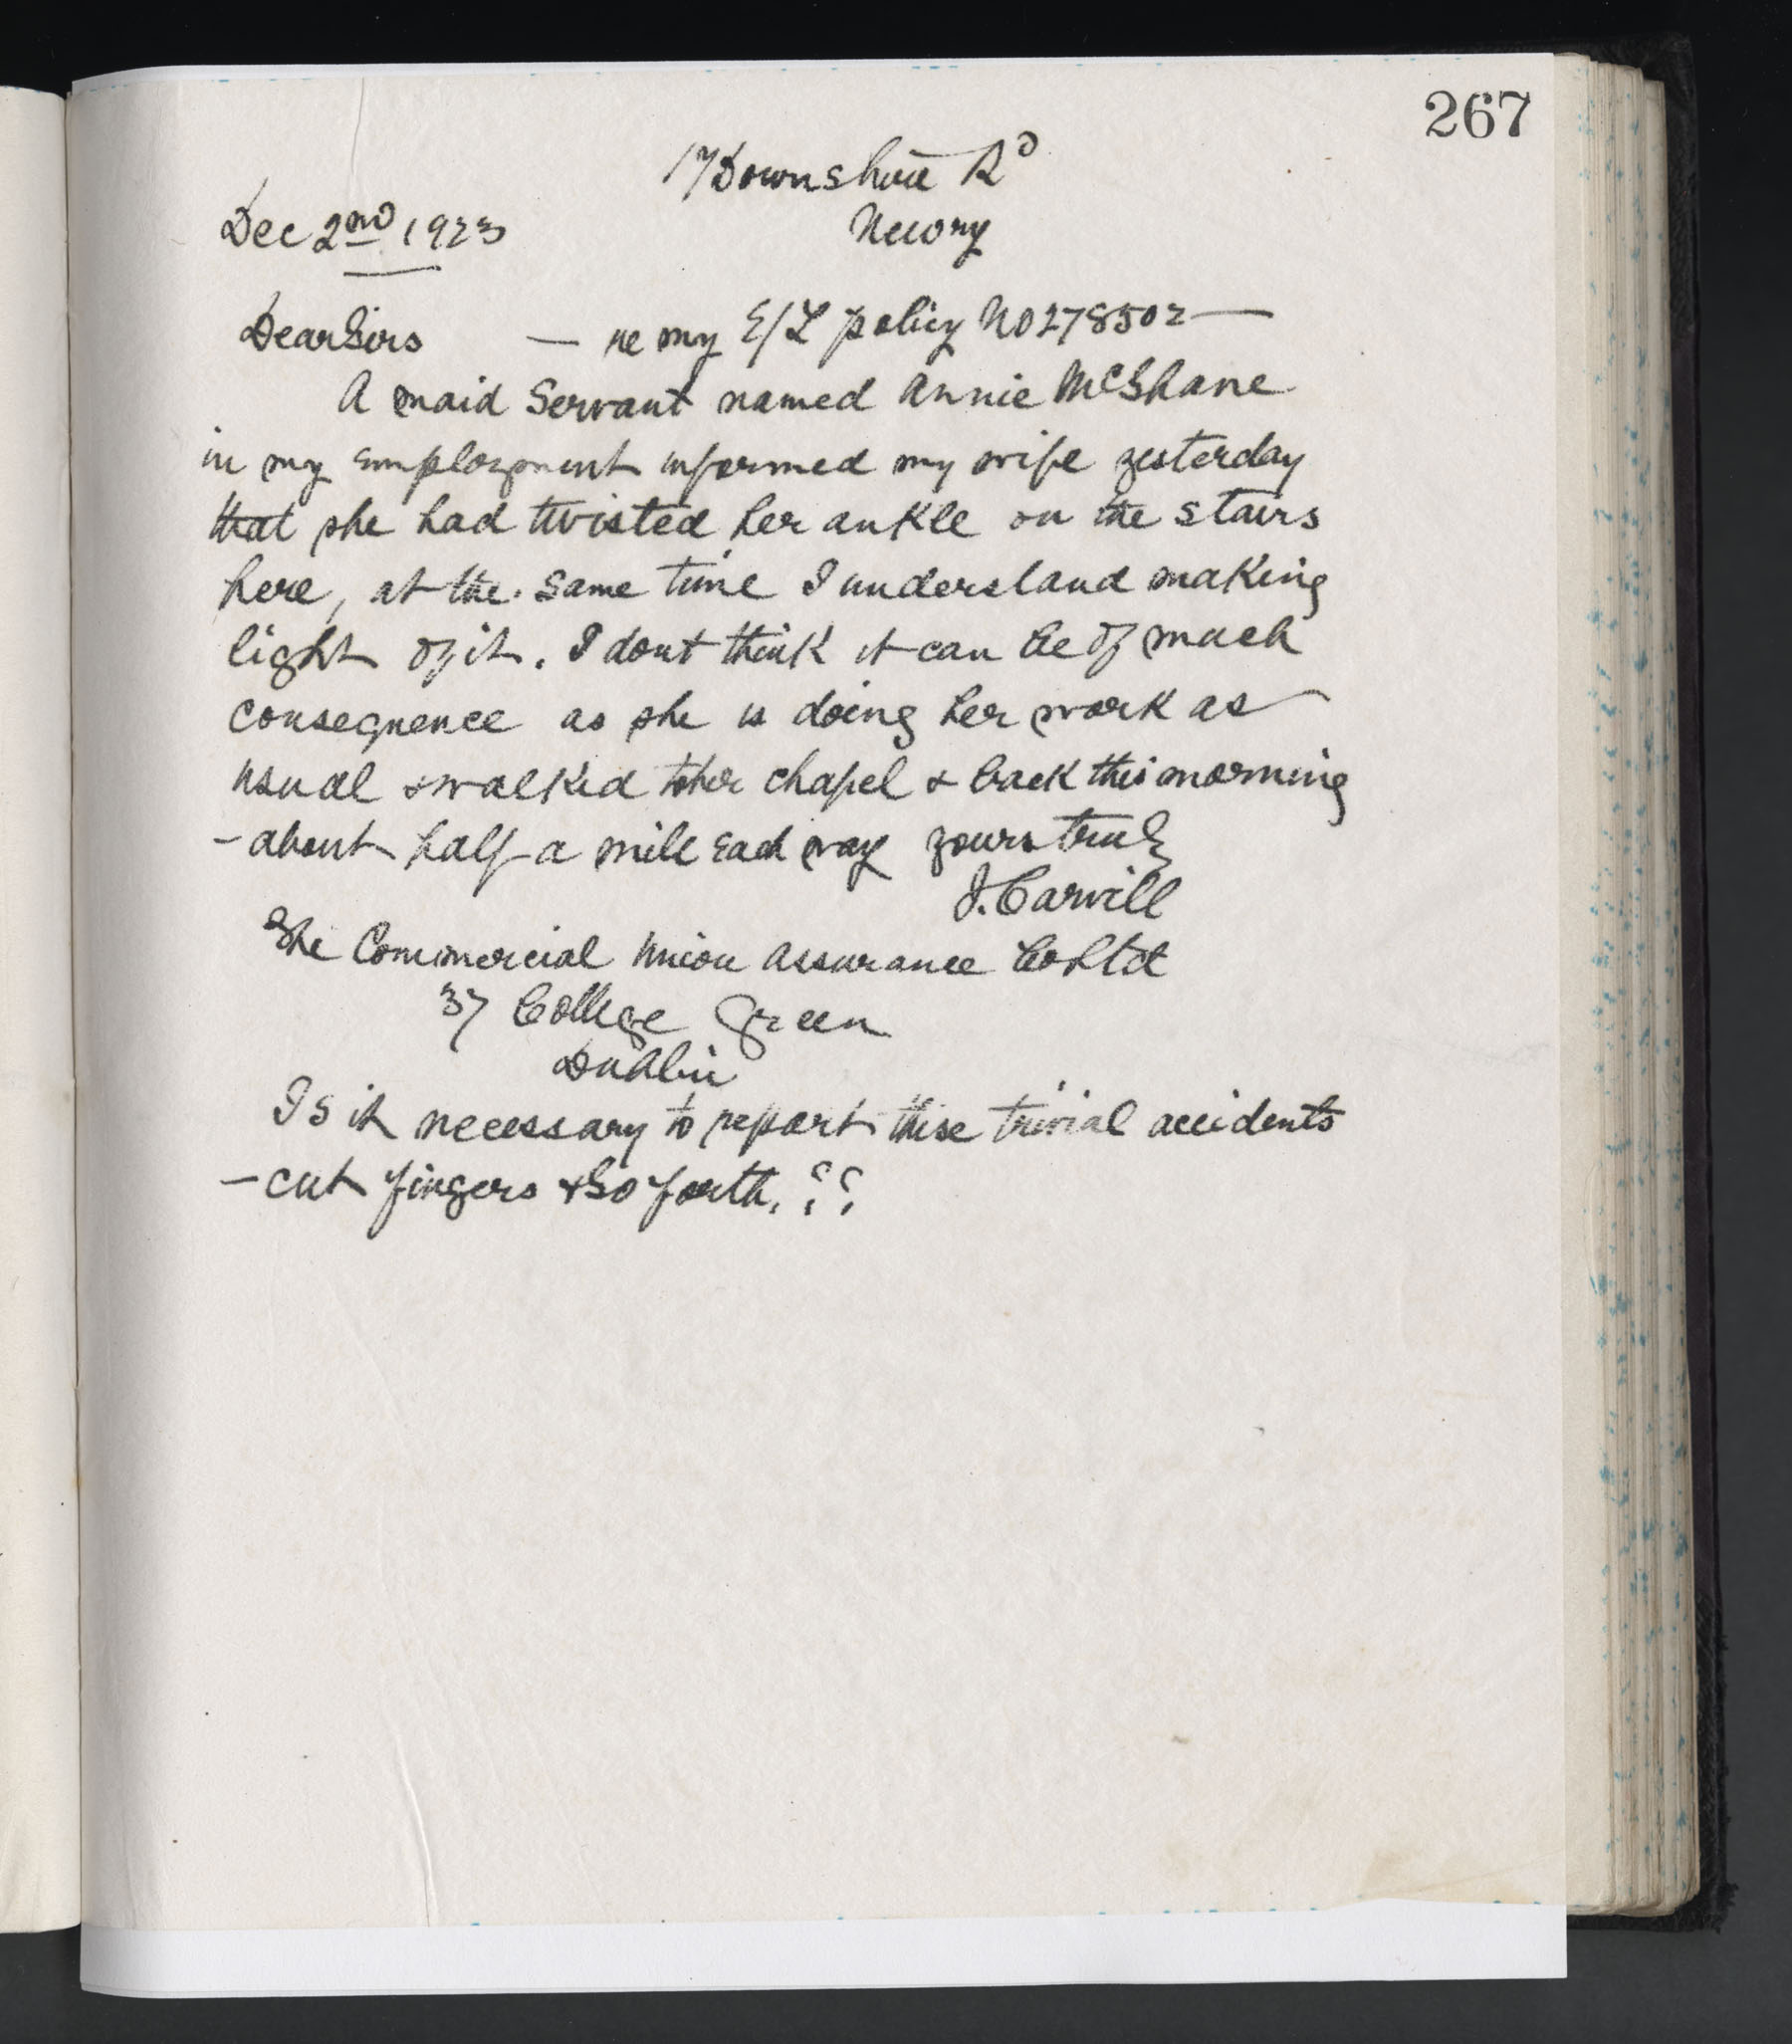 267
17 Downshire Rd
Dec 2nd 1923 Newry
Dear Sirs — re my E/L policy No 278502 —
A maid servant named Annie McShane
in my employment informed my wife yesterday
that she had twisted her ankle on the stairs
here, at the same time I understand making
light of it. I dont think it can be of much
consequence as she is doing her work as
usual & walked to her chapel & back this morning
- about half a mile each way yours truly
J. Carvill
The Commercial Union Assurance Co Ltd
37 College Green
Dublin
Is it necessary to report these trivial accidents
- cut fingers & so forth. ??